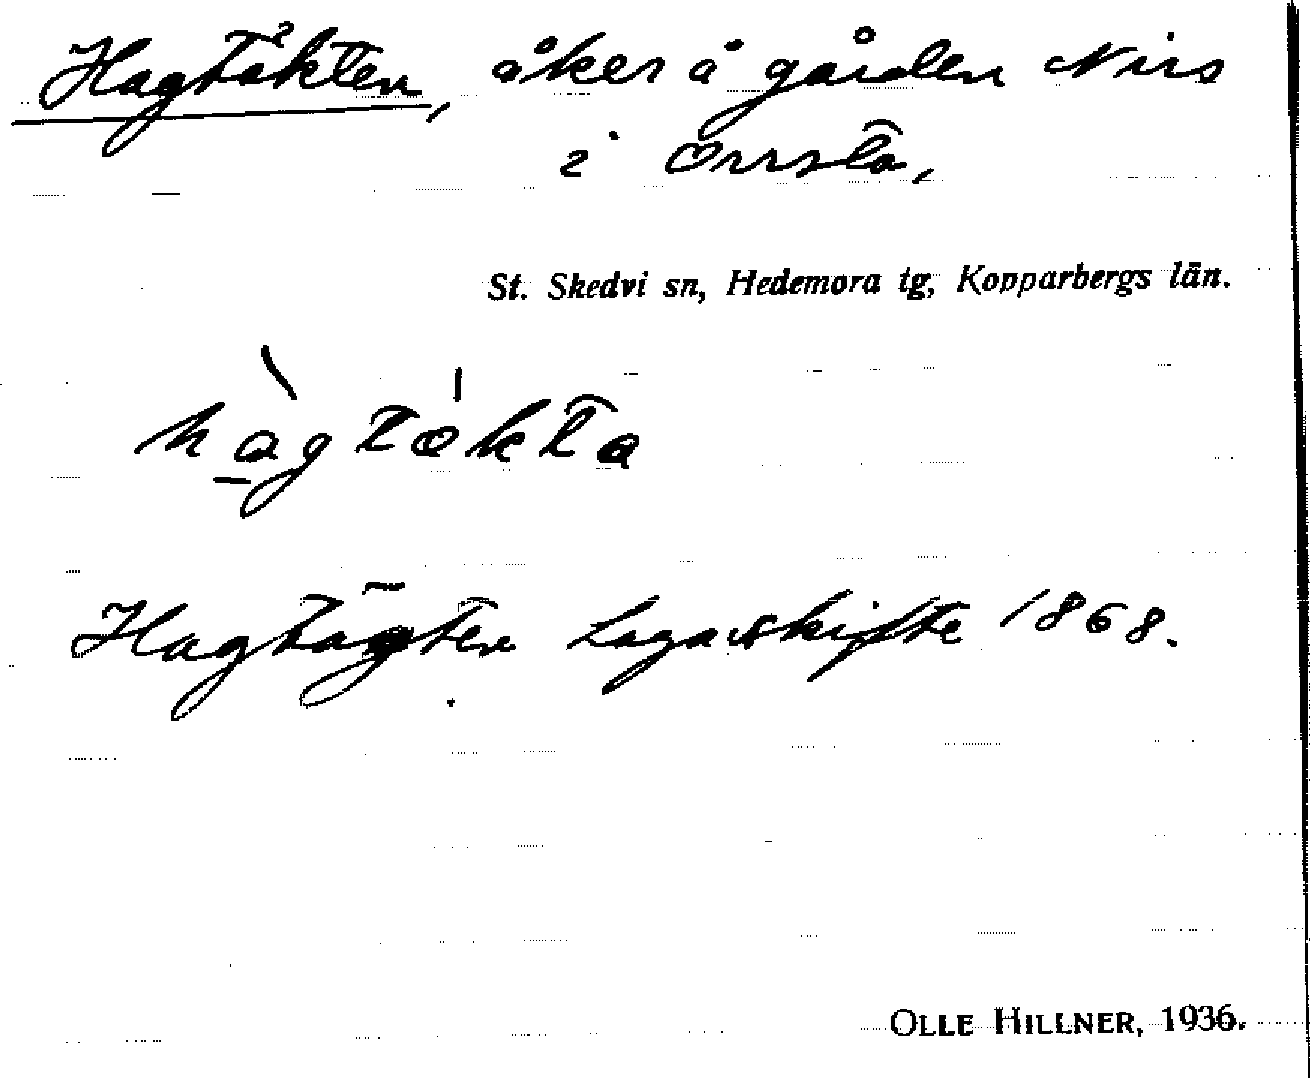 Hagtäkten, åker å gården Nirs
i Örrsta,
St. Skedvi sn, Hedemora tg, Kopparbergs län.
hàgtækta
Hagtägten Laga skifte 1868.
OLLE HILLNER, 1936.